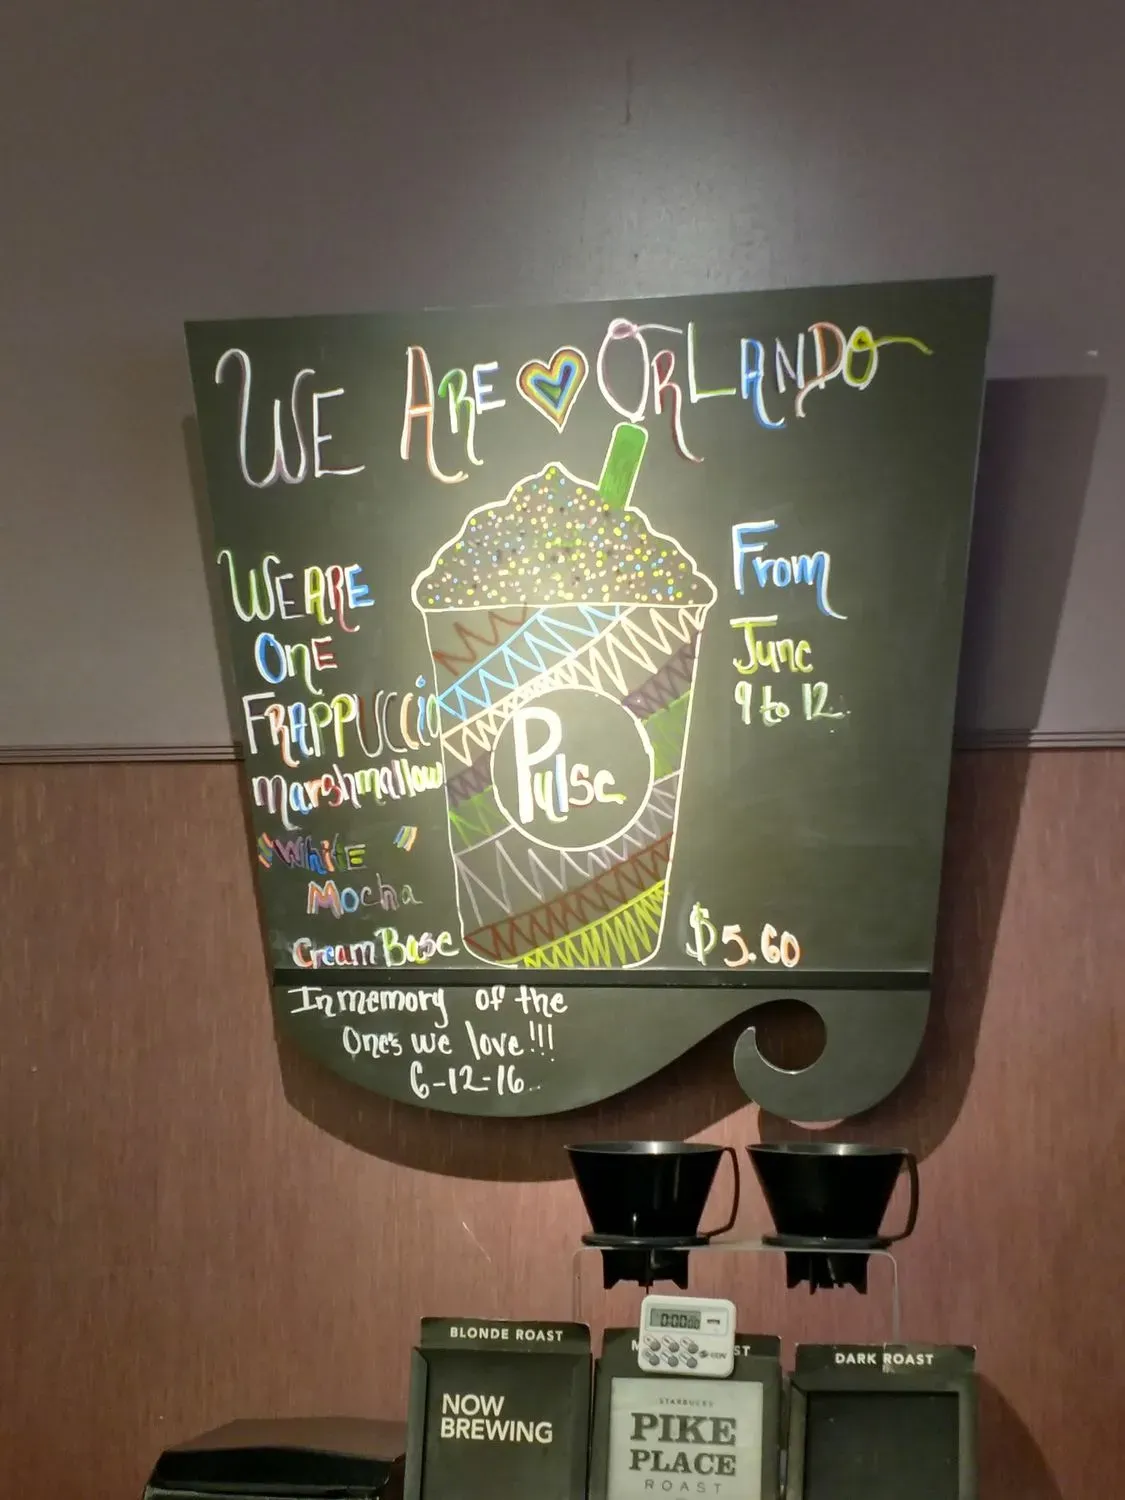 WE ARE ORLANDO
WE ARE
ONE
FRAPPUCCiO
marshmallow
"WhiTE"
Mocha
Cream Base
Pulse
From
June
9 to 12.
$5.60
In memory of the
One's we love!!!
6-12-16..
BLONDE ROAST
NOW
BREWING
ST
STARBUCKS
PIKE
PLACE
ROAST
DARK ROAST
0:00 00